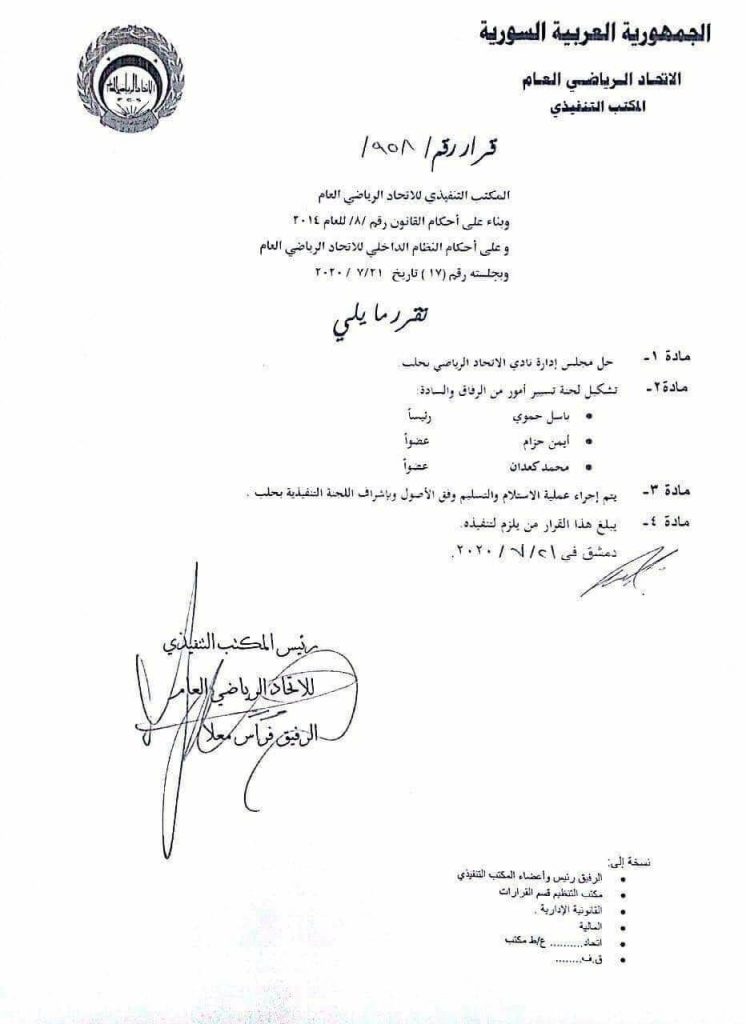 الجمهورية العربية السورية
الاتحاد الرياضي العام
المكتب التنفيذي
قرار رقم /٩٥٨/
المكتب التنفيذي للاتحاد الرياضي العام
وبناء على أحكام القانون رقم /٨/ للعام ٢٠١٤
وعلى أحكام النظام الداخلي للاتحاد الرياضي العام
وبجلسته رقم (١٧) تاريخ ٢٠٢٠/٧/٢١
تقرر ما يلي
مادة ١- حل مجلس إدارة نادي الاتحاد الرياضي بحلب
مادة ٢- تشكيل لجنة تسيير أمور من الرفاق والسادة:
• باسل حموي رئيساً
• أيمن حزام عضواً
• محمد كعدان عضواً
مادة ٣- يتم إجراء عملية الاستلام والتسليم وفق الأصول وبإشراف اللجنة التنفيذية بحلب .
مادة ٤- يبلغ هذا القرار من يلزم لتنفيذه.
دمشق في ٢٠٢٠/٧/٢١.
رئيس المكتب التنفيذي
للاتحاد الرياضي العام
الرفيق فراس معلا
نسخة إلى:
• الرفيق رئيس وأعضاء المكتب التنفيذي
• مكتب التنظيم قسم القرارات
• القانونية الإدارية .
• المالية
• اتحاد.......... ع/ط مكتب
• ق.ف........